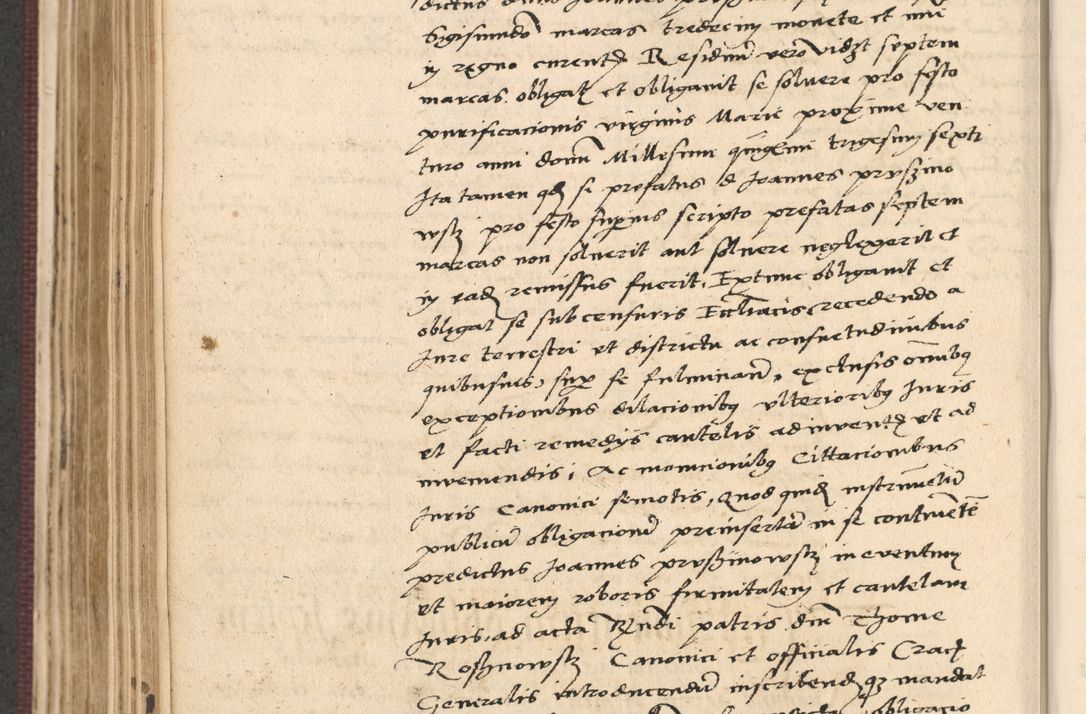 Sigismundo marcas tredecim monete et nūi
in regno curentꝫ Residuū vero vidꝫt septem
marcas obligat et obligavit se solvere pro festo
purificacionis virginis Marie proxime ven
turo anni domī Millesimi quīgēmi trigesimi septi
Ita tamen qd si prefatus d Joannes prvszino
wskj pro festo supius scripto prefatas septem
marcas non solverit aut solvere neglexerit et
in eadꝫ remissus fuerit, Extunc obligavit et
obligat se sub censuris Eccliacis recedendo a
Jure terrestri et districtu ac consuetudinibus
quibusuis, sup se fulminanđ, exclusis omībꝫ
exceptionibus dilacionibꝫ ulterioribꝫ Juris
et facti remedijs cautelis adinventꝫ et ad
inveniendis, Ac monicionibꝫ Cittacionibus
Juris Canonici semotis, Quod quidꝫ instrumētū
publicū obligacionū preinsertū in se continentē
predictus Joannes prvszinowskj in eventum
et maiorem roboris firmitatem et cautelam
Juris, ad acta Rndi patris dni Thome
Rosznowskj Canonici et officialis Cracꝫ
Generalis introducendū inscribendꝫ qꝫ mandat